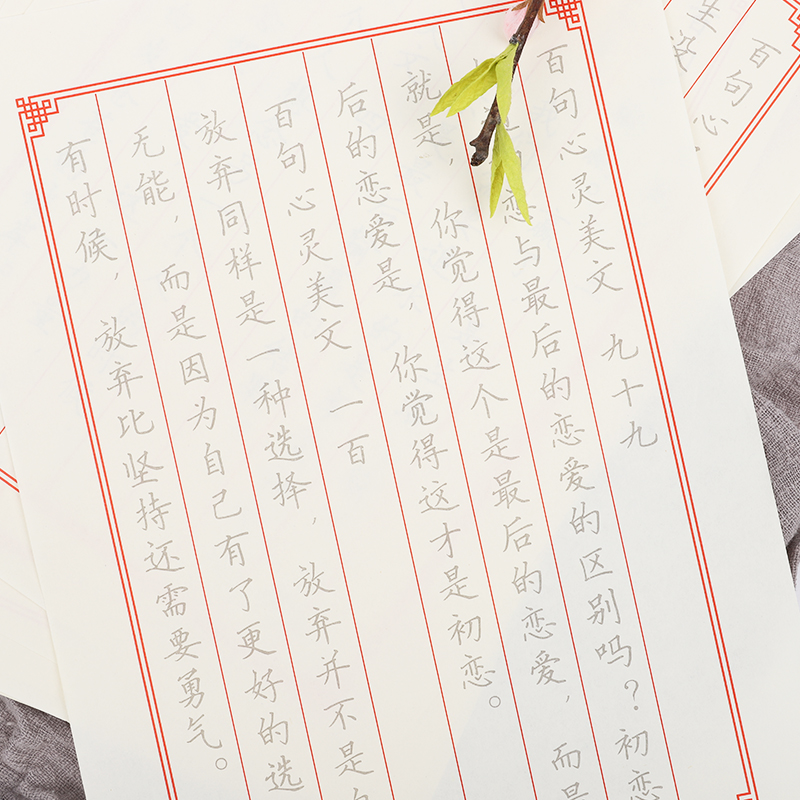 百句心灵美文 九十九
恋与最后的恋爱的区别吗？初恋
就是，你觉得这个是最后的恋爱，而是
后的恋爱是，你觉得这才是初恋。
百句心灵美文 一百
放弃同样是一种选择，放弃并不是
无能，而是因为自己有了更好的选
有时候，放弃比坚持还需要勇气。
百句心
生